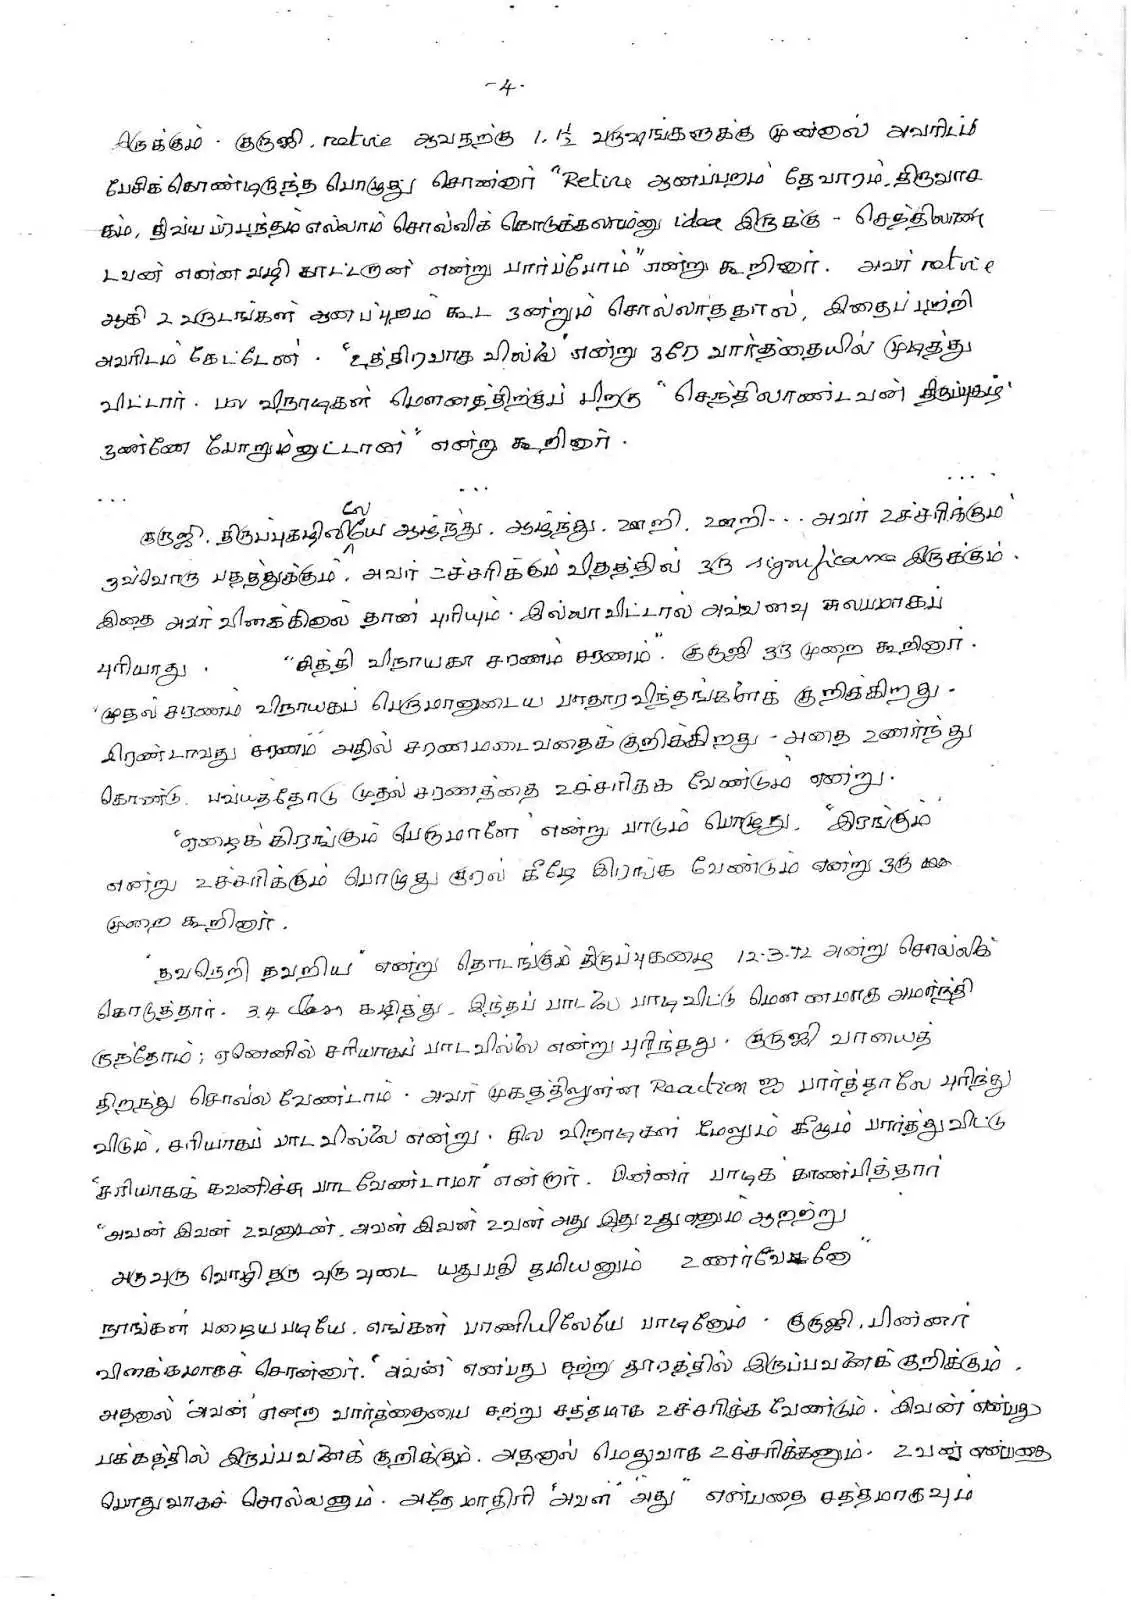 -4-
இருக்கும். குருஜி, retire ஆவதற்கு 1, 1½ வருஷங்களுக்கு முன்னால் அவரிடம்
பேசிக்கொண்டிருந்த பொழுது சொன்னார் "Retire ஆனப்புறம் தேவாரம், திருவாச
கம், திவ்யப்ரபந்தம் எல்லாம் சொல்லிக் கொடுக்கலாம்னு idea இருக்கு - செந்திலாண்
டவன் என்ன வழி காட்டறான் என்று பார்ப்போம்" என்று கூறினார். அவர் retire
ஆகி 2 வருடங்கள் ஆனப்புறம் கூட ஒன்றும் சொல்லாததால், இதைப்பற்றி
அவரிடம் கேட்டேன். "உத்திரவாக வில்லை" என்று ஒரே வார்த்தையில் முடித்து
விட்டார். பல விநாடிகள் மௌனத்திற்குப் பிறகு "செந்திலாண்டவன் திருப்புகழ்
ஒண்ணே போறும்னுட்டான்" என்று கூறினார்.
... ... ....
குருஜி, திருப்புகழிலேயே ஆழ்ந்து, ஆழ்ந்து, ஊறி, ஊறி... அவர் உச்சரிக்கும்
ஒவ்வொரு பதத்துக்கும், அவர் உச்சரிக்கும் விதத்தில் ஒரு significance இருக்கும்.
இதை அவர் விளக்கினால் தான் புரியும். இல்லாவிட்டால் அவ்வளவு சுலபமாகப்
புரியாது. "சித்தி விநாயகா சரணம் சரணம்". குருஜி ஒரு முறை கூறினார்.
'முதல் சரணம் விநாயகப் பெருமானுடைய பாதாரவிந்தங்களைக் குறிக்கிறது.
இரண்டாவது சரணம்' அதில் சரணமடைவதைக் குறிக்கிறது - அதை உணர்ந்து
கொண்டு, பவ்யத்தோடு முதல் சரணத்தை உச்சரிக்க வேண்டும் என்று.
'ஏழைக்கிரங்கும் பெருமாளே' என்று பாடும் பொழுது, 'இரங்கும்'
என்று உச்சரிக்கும் பொழுது குரல் கீழே இரங்க வேண்டும் என்று ஒரு
முறை கூறினார்.
'தவநெறி தவறிய' என்று தொடங்கும் திருப்புகழை 12-3-72 அன்று சொல்லிக்
கொடுத்தார். 3,4 class கழித்து, இந்தப் பாடலை பாடி விட்டு மௌனமாக அமர்ந்தி
ருந்தோம்; ஏனெனில் சரியாகப் பாடவில்லை என்று புரிந்தது. குருஜி வாயைத்
திறந்து சொல்ல வேண்டாம். அவர் முகத்திலுள்ள Reaction ஐ பார்த்தாலே புரிந்து
விடும், சரியாகப் பாடவில்லை என்று. சில விநாடிகள் மேலும் கீழும் பார்த்து விட்டு
'சரியாகக் கவனிச்சு பாடவேண்டாமா' என்றார். பின்னர் பாடிக் காண்பித்தார்
"அவன் இவன் உவனுடன், அவள் இவள் உவள் அது இது உது எனும் ஆறற்று
அருவுரு வொழிதரு வுருவுடை யதுபதி தமியனும் உணர்வேனே"
நாங்கள் பழையபடியே, எங்கள் பாணியிலேயே பாடினோம். குருஜி, பின்னர்
விளக்கமாகச் சொன்னார். 'அவன்' என்பது சற்று தூரத்தில் இருப்பவனைக் குறிக்கும்.
அதனால் 'அவன்' என்ற வார்த்தையை சற்று சத்தமாக உச்சரிக்க வேண்டும். 'இவன்' என்பது
பக்கத்தில் இருப்பவனைக் குறிக்கும். அதனால் மெதுவாக உச்சரிக்கணும். உவன் என்பதை
பொதுவாகச் சொல்லணும். அதே மாதிரி 'அவள்' 'அது" என்பதை சத்தமாகவும்